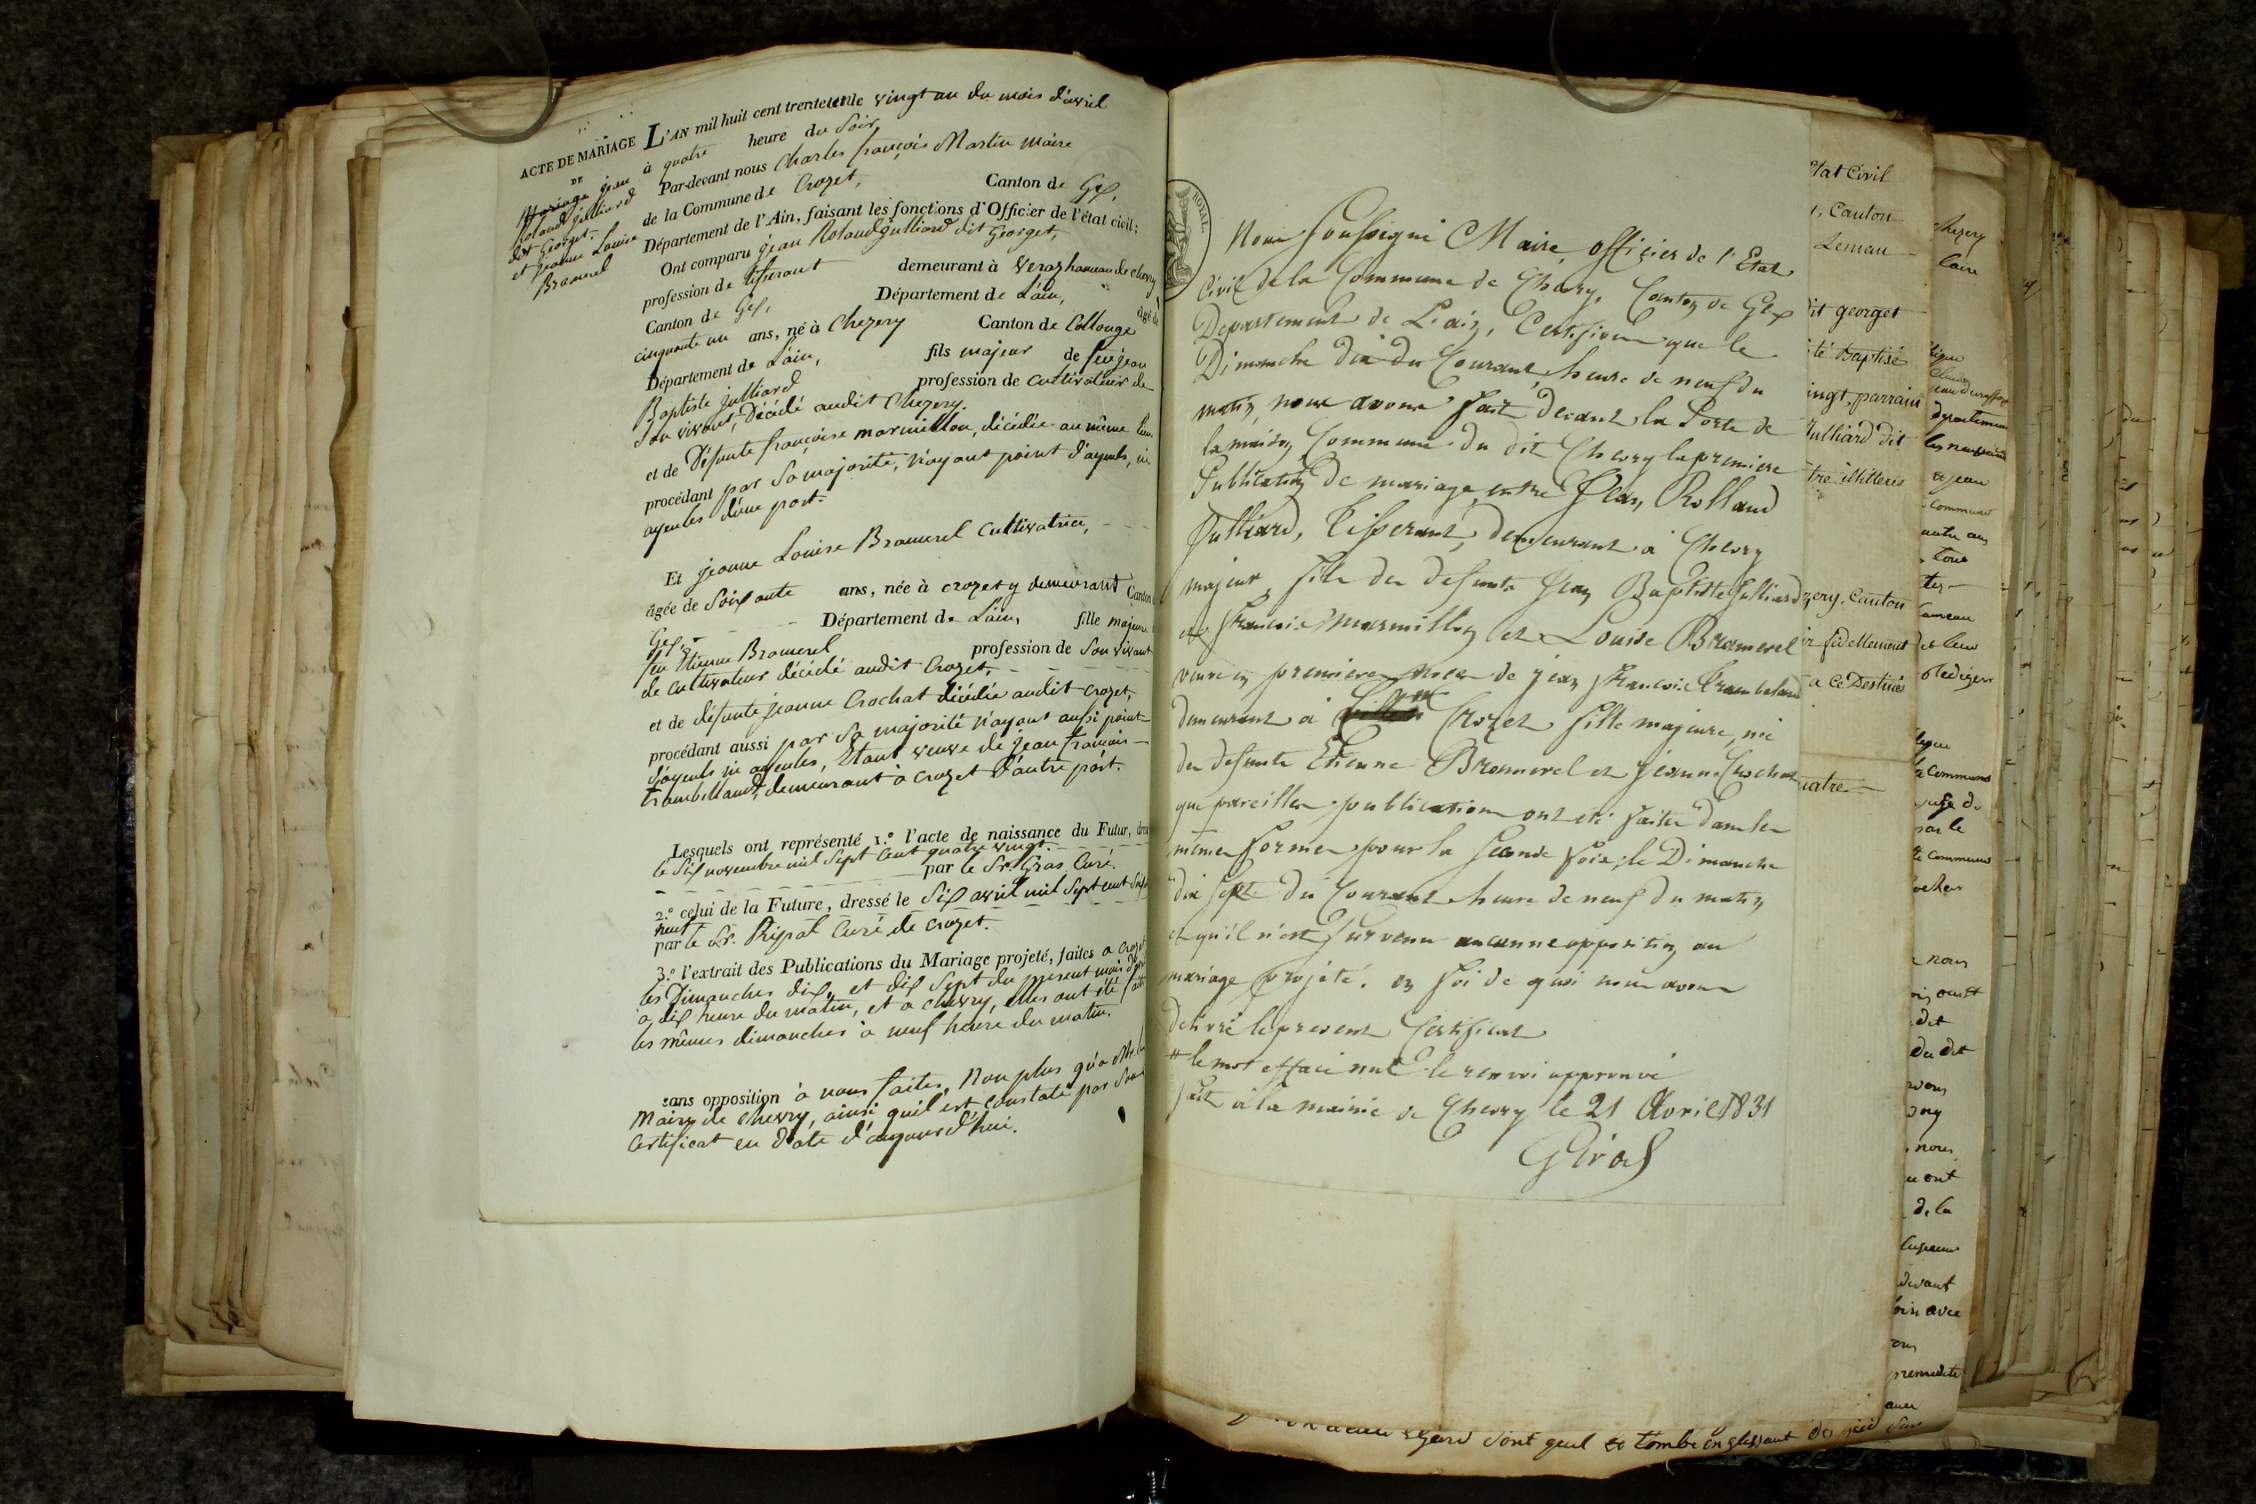 ACTE DE MARIAGE
DE
Mariage jean
Roland julliard
dit Georget.
et jeanne Louise
Bramerel
L'AN mil huit cent trente un le vingt un du mois d'avril
à quatre heure du Soir
Par-devant nous Charles françois Martin maire
de la Commune de Crozet, Canton de Gex,
Département de l'Ain, faisant les fonctions d'Officier de l'état civil;
Ont comparu jean Roland julliard dit Georget,
profession de tisserant demeurant à Veraz hameau de chevry
Canton de Gex, Département de L'ain, âgé de
cinquante un ans, né à Chezery Canton de Collonge
Département de L'ain, fils majeur de feu jean
Baptiste julliard profession de cultivateur de
Son vivant, Décédé audit Chezery.
et de Défunte françoise marmillon, décédée au même lieu
procédant par Sa majorité, n'ayant point d'ayeuls, ni
ayeules d'une part.
Et jeanne Louise Bramerel cultivatrice,
âgée de Soixante ans, née à crozet y demeurant Canton
Gex, Département de L'ain, fille majeure
feu Etienne Bramerel profession de Son vivant
de cultivateur décédé audit Crozet,
et de défunte jeanne Crochat décédée audit crozet,
procédant aussi par Sa majorité n'ayant aussi point
d'ayeuls ni ayeules, Etant veuve de jean françois
trambilland, demeurant à crozet d'autre part.
Lesquels ont représenté 1.° l'acte de naissance du Futur,
le Six novembre mil Sept cent quatre vingt
par le Sr. Gras, Curé.
2.° celui de la Future, dressé le Six avril mil Sept cent
neuf
par le Sr. Ripal Curé de crozet.
3.° l'extrait des Publications du Mariage projeté, faites a
les Dimanches dix, et dix Sept du present mois
à dix heure du matin, et a chevry, elles ont été
les mêmes dimanches à neuf heure du matin.
sans opposition à nous faites, Non plus qu'a
Mairy de chevry, ainsi quil est constaté par Son
Certificat en date d'aujourd'hui.
ROYAL.
Nous Soussigné Maire, officier de l'Etat
Civil de la Commune de Chevry, Canton de Gex
Departement de L'ain, Certifions que le
Dimanche dix du Courant, heure de neuf du
matin, nous avons fait devant la Porte de
la maison Commune du dit Chevry la premiere
Publication de mariage entre Jean Rolland
Julliard, Tisserant, demeurant à Chevry
majeur, fils des defunts Jean Baptiste Julliard
et francoise Marmillon et Louise Bramerel
veuve en premiere noces de jean francois
demeurant à Crozet fille majeure, née
des defunts Etienne Bramerel et jeanne Crochat
que pareilles publications ont été faites dans les
mêmes formes pour la Seconde fois, le Dimanche
dix sept du Courant heure de neuf du matin
et qu'il n'est Survenu aucunne opposition au
mariage projeté. en foi de quoi nous avons
délivré le present Certificat
# le mot effacé nul le renvoi approuvé
fait à la mairie de Chevry le 21 Avril 1831
Giral
Canton
Leman
dit georget
été Baptisé
ingt, parrain
Julliard dit
Canton
fidellement
a ce Destinés
chezery